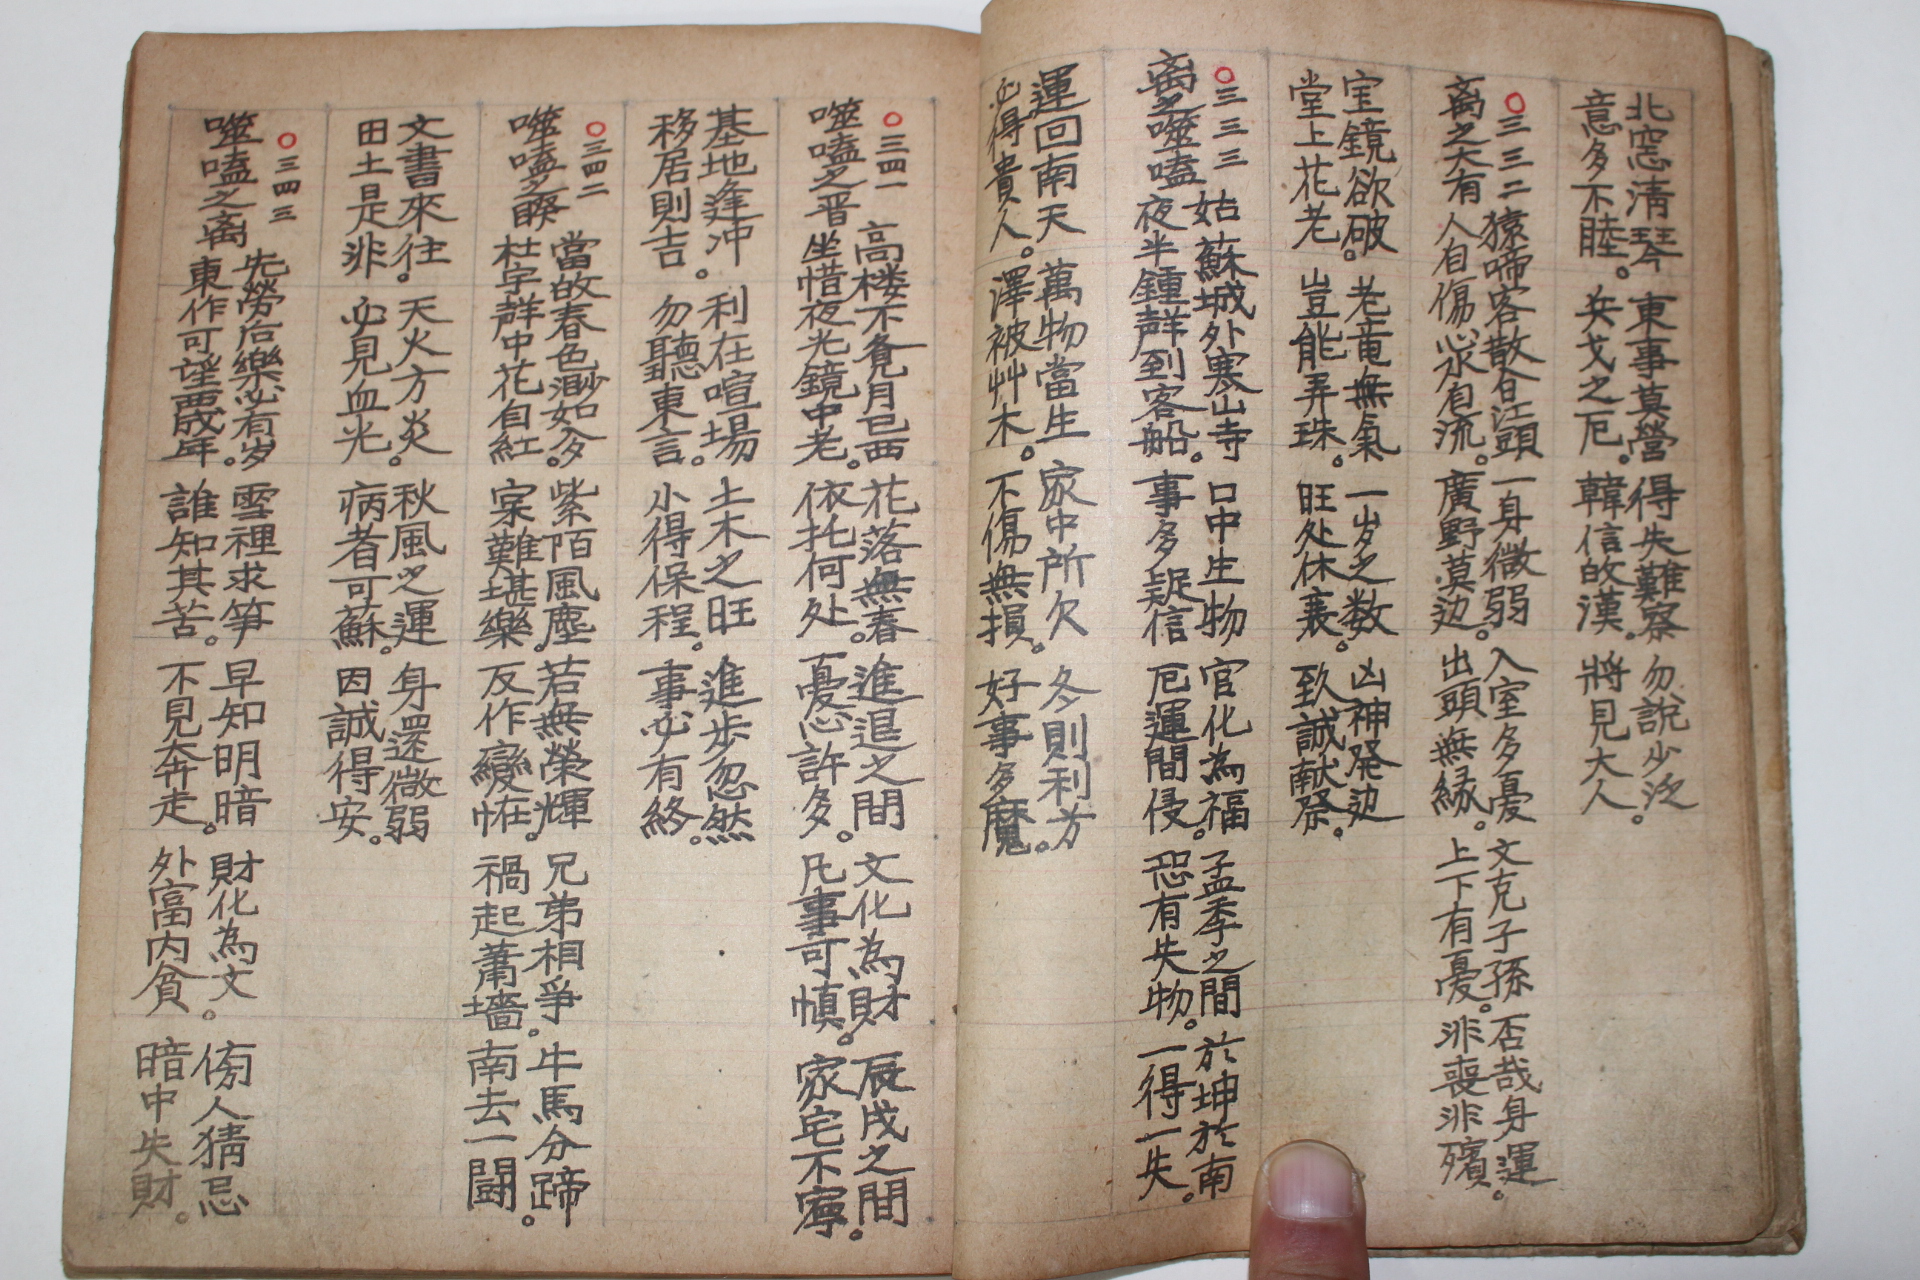 北窓清琴
意多不睦。
東事莫營
兵戈之厄。
得失難察
韓信的漢。
勿說少泛
將見大人。
○三三二
离之大有
猿啼客散合江頭
人自傷心水自流。
一身微弱
廣野莫边。
入室多憂
出頭無緣。
文克子孫
上下有憂。
否哉身運
非喪非殯。
宝鏡欲破
堂上花老。
老竜無氣
豈能弄珠。
一岁之数
旺处休衰。
凶神発边
致誠献祭。
○三三三
离之噬嗑
姑蘇城外寒山寺
夜半鍾声到客船。
口中生物
事多疑信
官化為福
厄運間侵。
孟季之間
恐有失物。
於坤於南
一得一失。
運回南天
必得貴人。
萬物當生
澤被艸木。
家中所欠
不傷無損。
冬則利方
好事多魔。
○三四一
噬嗑之晋
高楼不覓月已西
坐惜夜光鏡中老。
花落無春
依托何处。
進退之間
憂心許多。
文化為財
凡事可慎。
辰戌之間
家宅不寧。
基地逢冲
移居則吉。
利在喧場
勿聽東言。
土木之旺
小得保程。
進步忽然
事必有終。
○三四二
噬嗑之睽
當故春色渺如夕
杜宇群中花自紅。
紫陌風塵
宲難堪樂。
若無榮輝
反作變恠。
兄弟相爭
禍起蕭墻。
牛馬分蹄
南去一闘。
文書來往
田土是非。
天火方炎
必見血光。
秋風之運
病者可蘇。
身還微弱
因誠得安。
○三四三
噬嗑之离
先勞后樂必有岁
東作可望西成年。
雪裡求笋
誰知其苦。
早知明暗
不見奔走。
財化為文
外富内貧。
傍人猜忌
暗中失財。